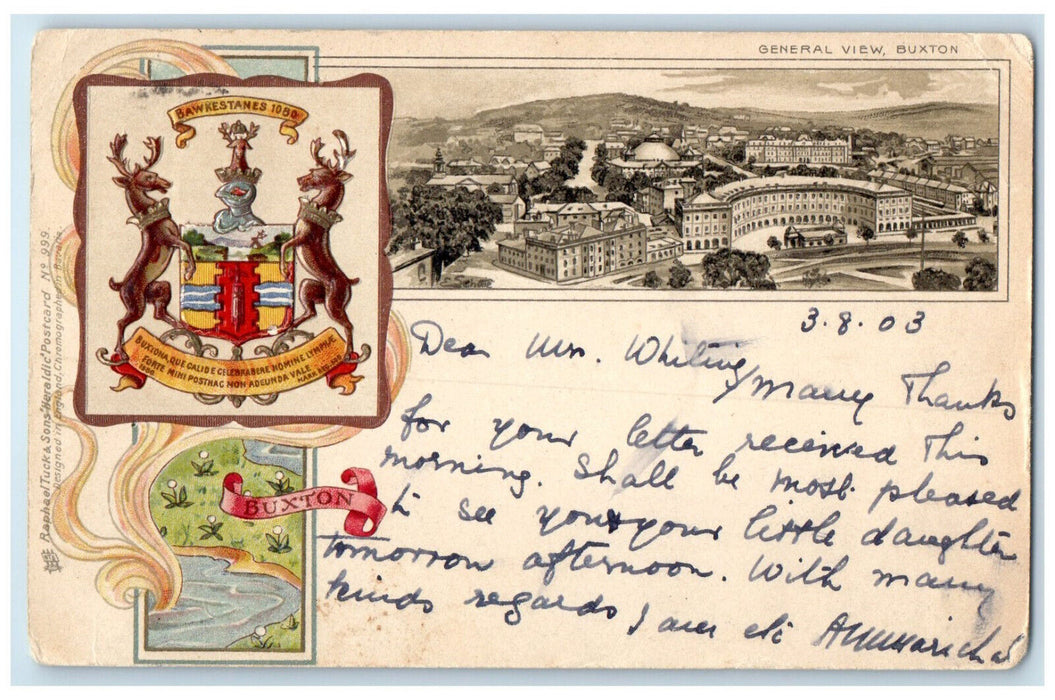 GENERAL VIEW, BUXTON
BAWKESTANES 1050
BUXTONA, QUE CALIDE CELEBRABERE NOMINE LYMPHÆ
FORTE MIHI POSTHAC NON ADEUNDA VALE
Raphael Tuck & Sons' "Heraldic" Postcard No 999.
Designed in England, Chromographed in Bavaria.
BUXTON
3.8.03
Dear Mrs. Whiting, Many Thanks
for your letter received this
morning. Shall be most pleased
to see you & your little daughter
tomorrow afternoon. With many
kind regards I am etc